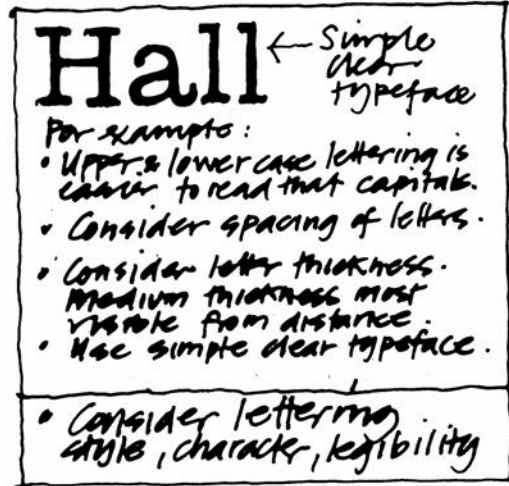 Hall ← Simple
clear
typeface
For example:
• Upper & lower case lettering is
easier to read that capitals.
• Consider spacing of letters.
• Consider letter thickness.
medium thickness most
visible from distance.
• Use simple clear typeface.
• Consider lettering
style, character, legibility